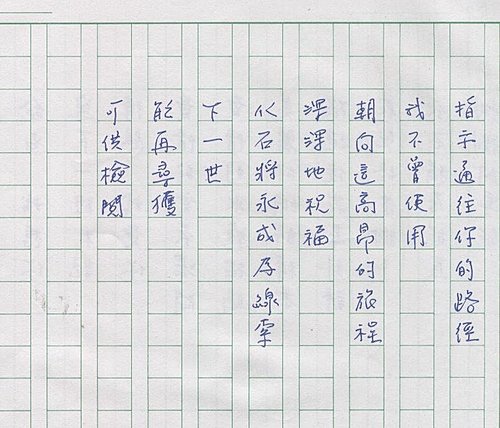 指示通往你的路徑
我不曾使用
朝向這高昂的旅程
深深地祝福
化石將永成為線索
下一世
能再尋獲
可供檢閱